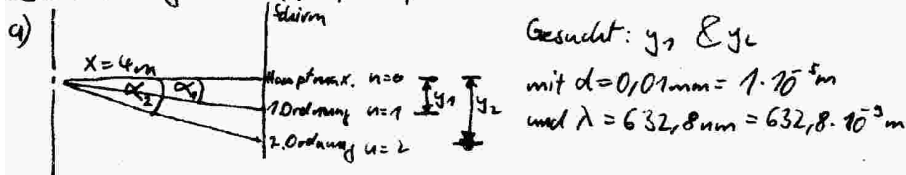 a)
Schirm
x = 4m
α₂
α₁
Hauptmax. n=0
1. Ordnung n=1
2. Ordnung n=2
y₁
y₂
Gesucht: y₁ & y₂
mit d = 0,01mm = 1·10⁻⁵m
und λ = 632,8nm = 632,8·10⁻⁹m